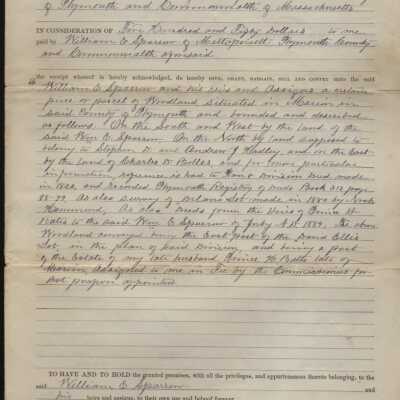 of Plymouth and Commonwealth of Massachusetts
IN CONSIDERATION OF Five Hundred and Fifty Dollars to me
paid by William E Sparrow of Mattapoisett Plymouth County
and Commonwealth aforesaid
the receipt whereof is hereby acknowledged, do hereby GIVE, GRANT, BARGAIN, SELL AND CONVEY unto the said
William E Sparrow and his Heirs and Assigns a certain
piece or parcel of Woodland situated in Marion in
said County of Plymouth and bounded and described
as follows. On the South and West by the Land of the
said Wm E. Sparrow. On the North by Land supposed to
belong to Stephen D. and Andrew J. Hadley, and on the East
by the Land of Charles D. Bolles, and for more particular
information, reference is had to Deed made
in and recorded Plymouth Registry of Deeds Book 212 page
As also Survey of Lot made in by Noah
Hammond, As also Deeds from the Heirs of H
Bates to the said Wm E Sparrow of Feby A.D. 1889, the above
Woodland conveyed being the East part of the David Ellis
Lot, in the plan of said Division, and being a part
of the Estate of my late husband H Bates late of
Marion assigned to me in Fee by the Commissioners for
that purpose appointed
TO HAVE AND TO HOLD the granted premises, with all the privileges, and appurtenances thereto belonging, to the
said William E. Sparrow and
his heirs and assigns, to their own use and behoof forever.